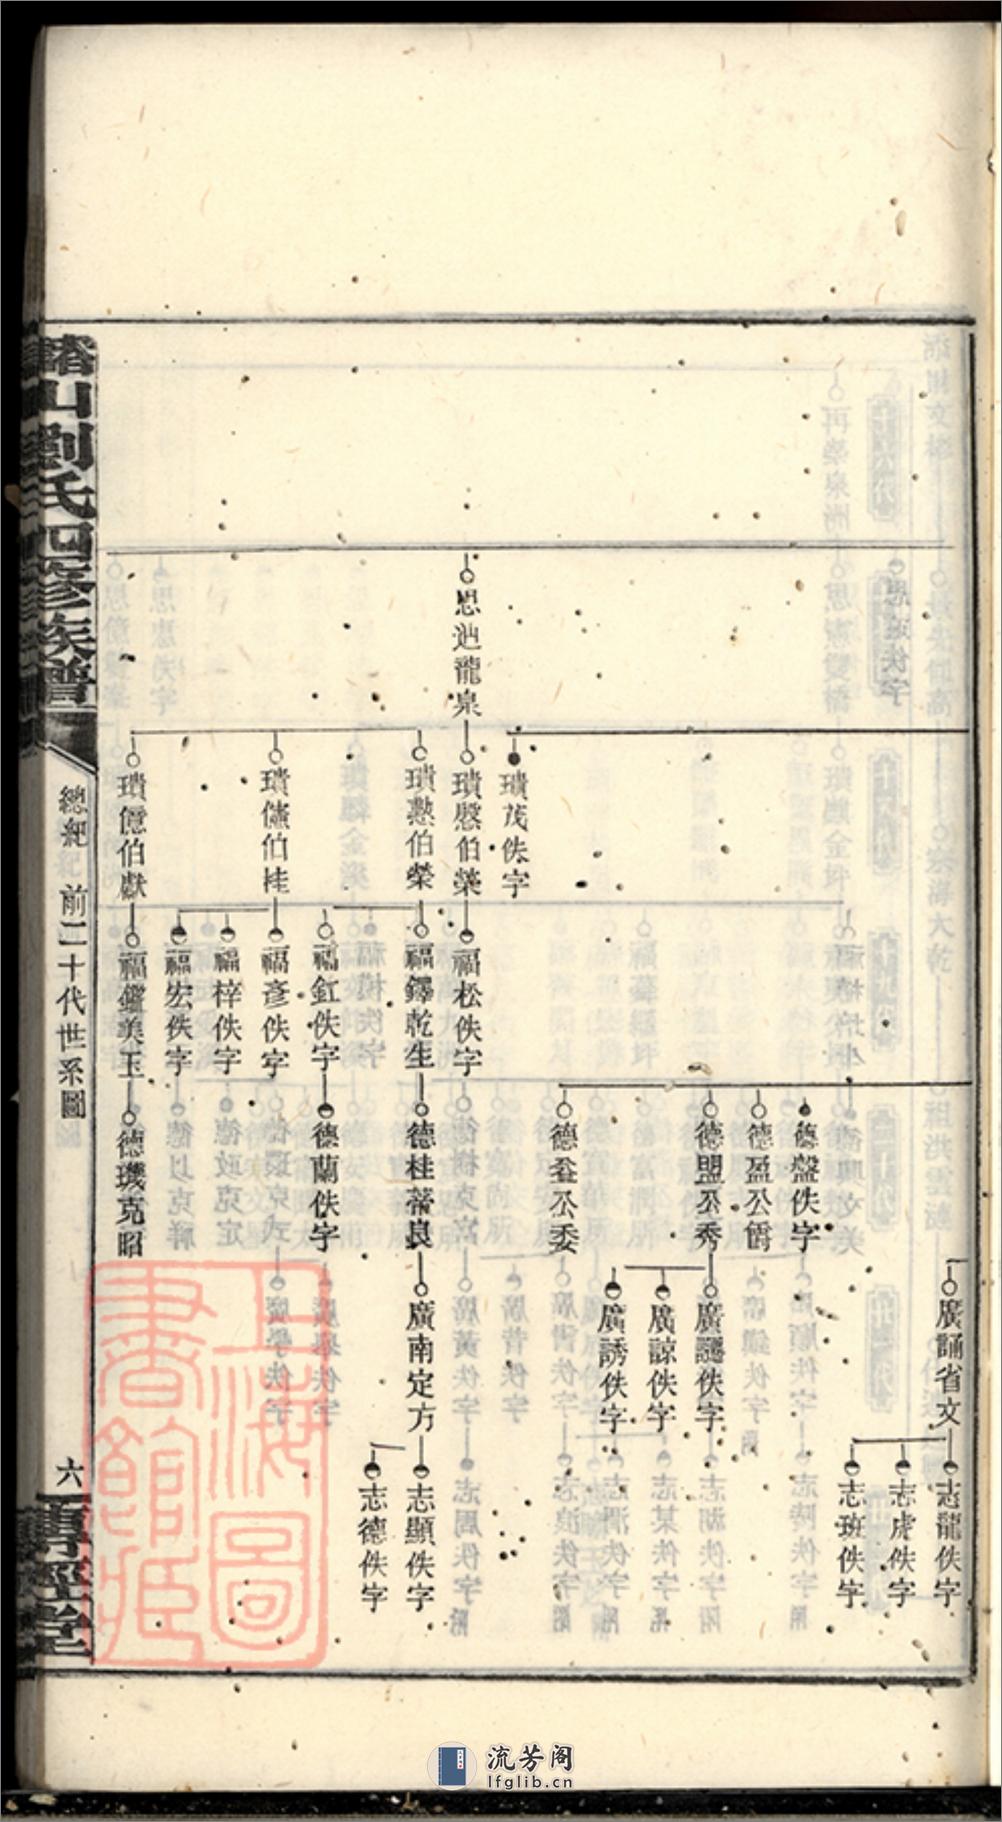 山劉氏四修族譜
總紀
前二十代世系圖
六
思迪龍泉
瓚茂佚字
瓚慇伯榮
瓚懃伯榮
瓚僖伯桂
瓚億伯獻
福松佚字
福鐸乾生
福釭佚字
福彥佚字
福梓佚字
福宏佚字
福鑑美玉
德盤佚字
德盈公爵
德盟公秀
德益公委
德桂蒂良
德蘭佚字
德璣克昭
廣誦省文
廣佚字
廣諒佚字
廣誘佚字
廣南定方
志龍佚字
志虎佚字
志班佚字
志顯佚字
志德佚字
上海圖書館藏
流芳阁
lfglib.cn